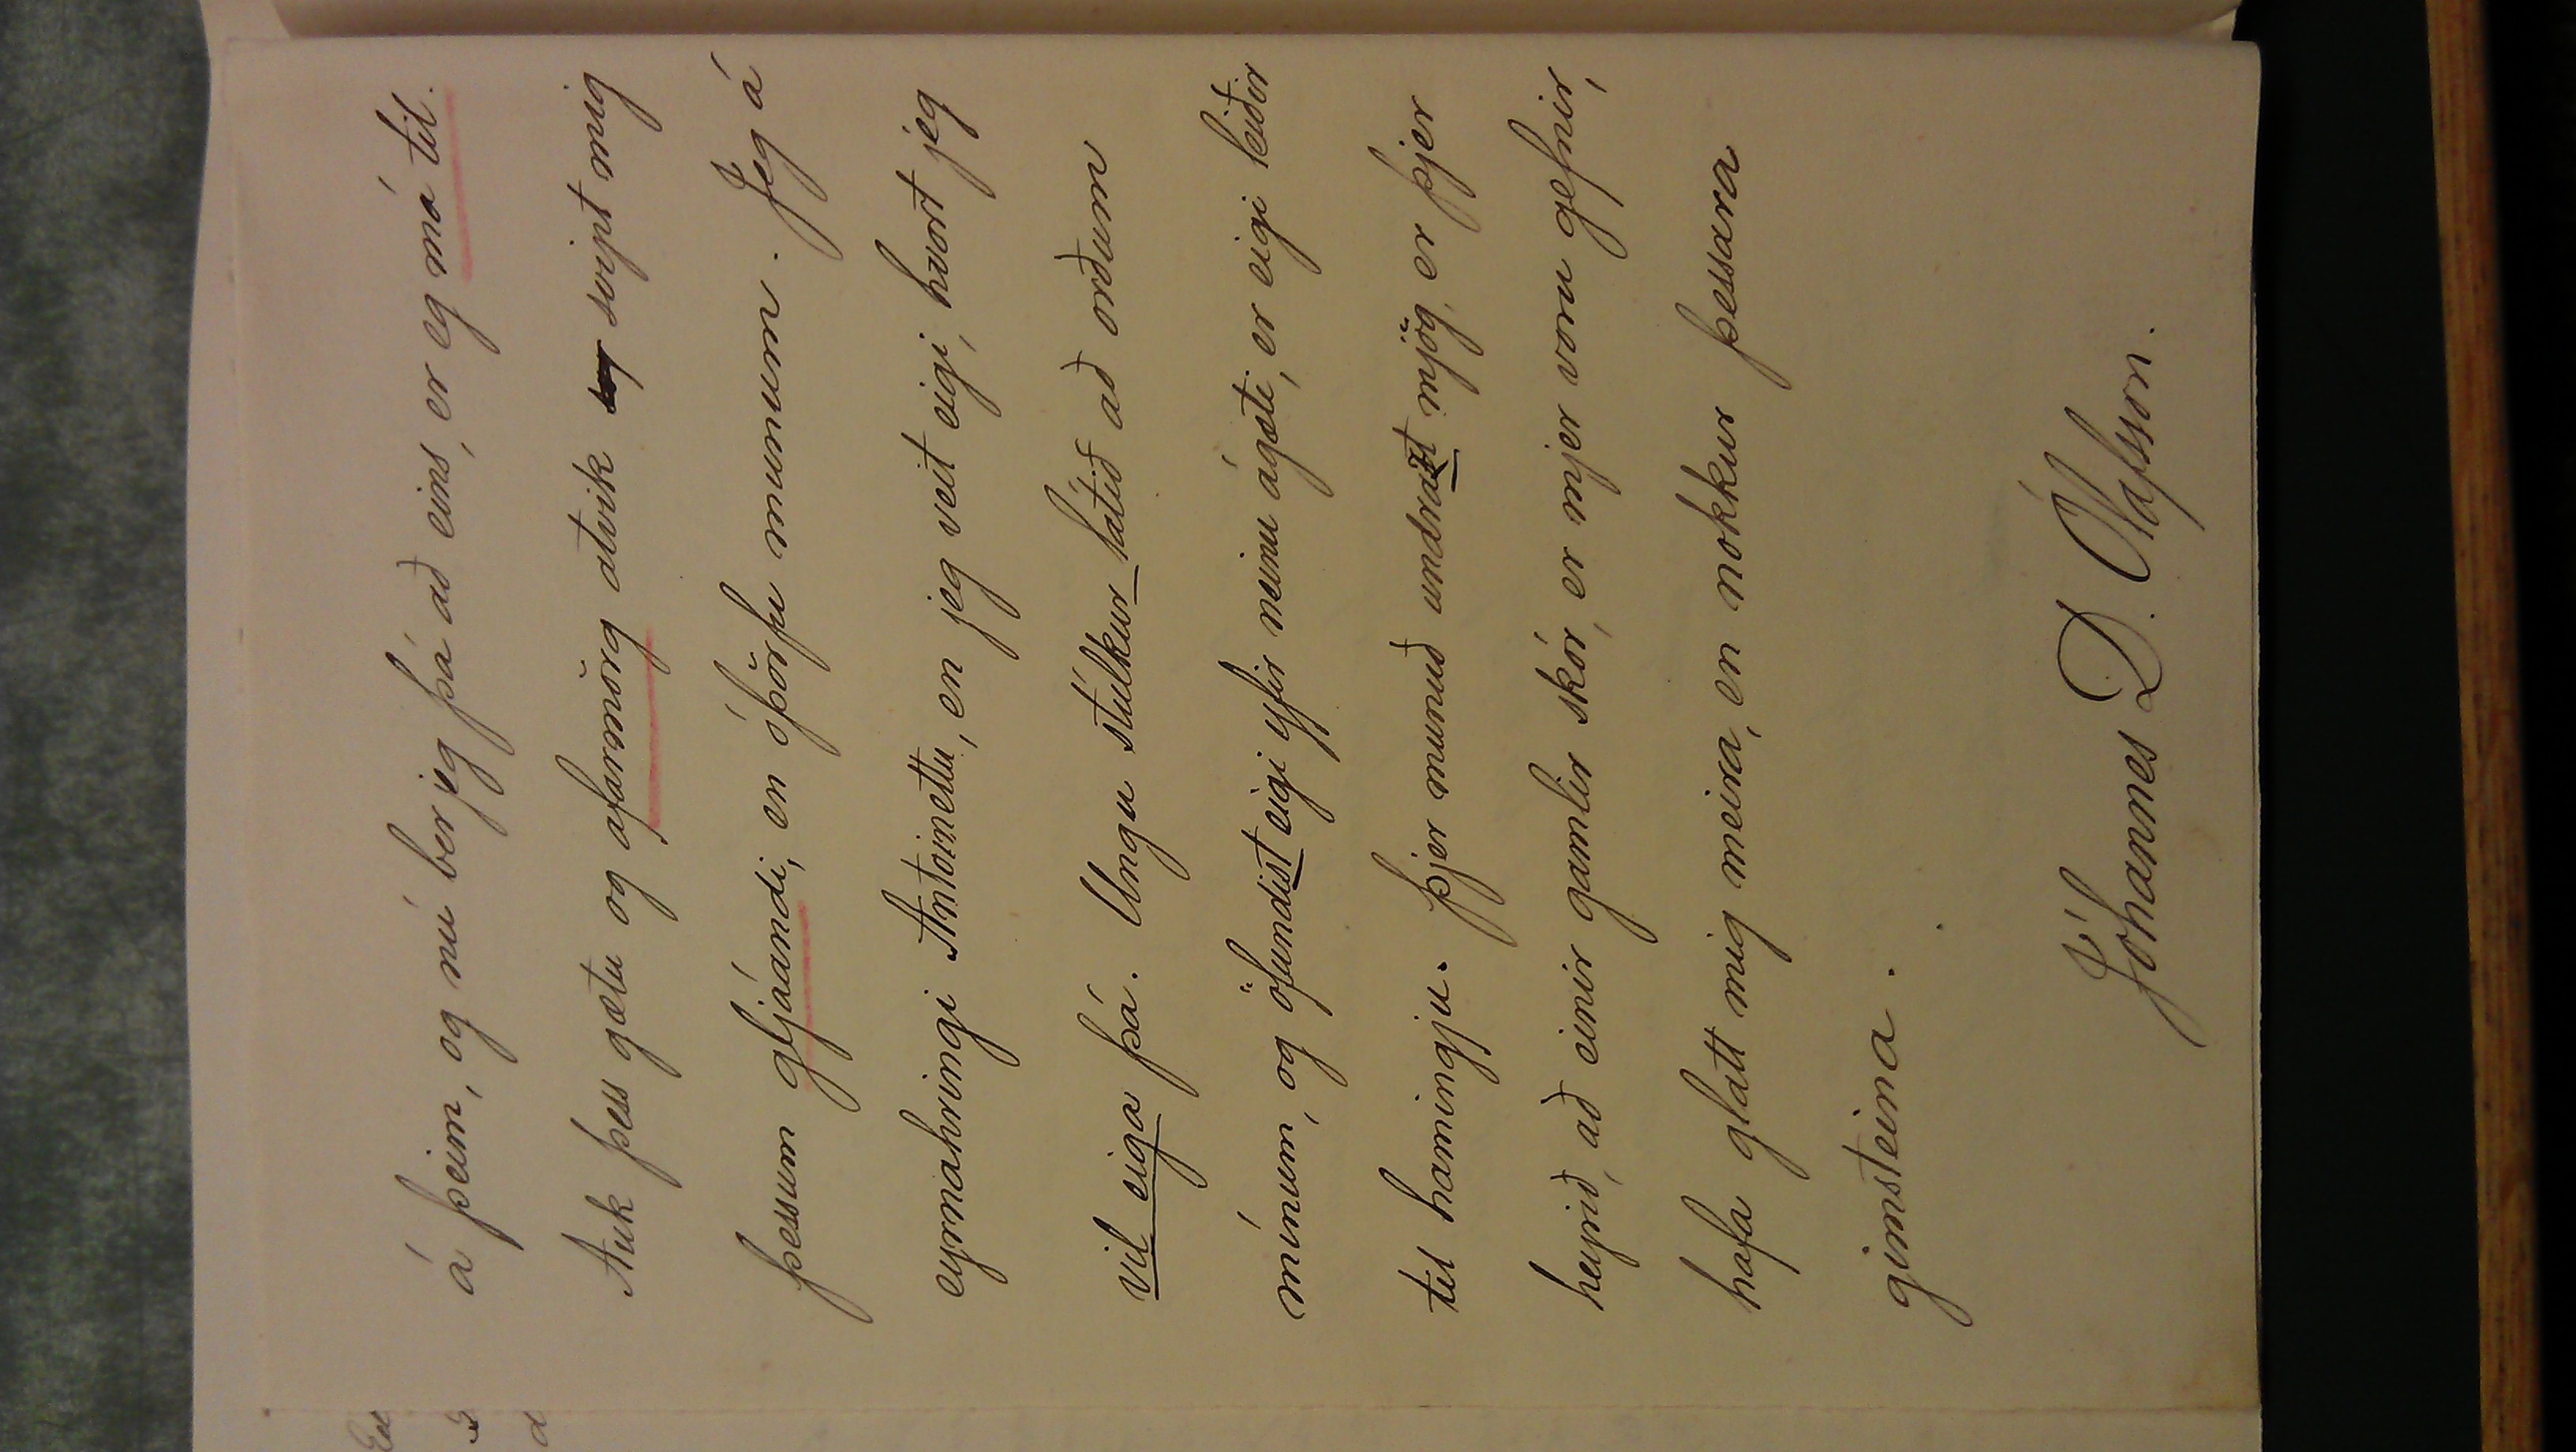 á þeim, og nú ber jeg þá að eins, er eg má til.
Auk þess gætu og afarmörg atvik svipt mig
þessum gljáandi, en óþörfu munum. Jeg á
eyrnahringi Antoinettu, en jeg veit eigi, hvort jeg
vil eiga þá. Ungu stúlkur látið að orðum
mínum, og öfundist eigi yfir neinu ágæti, er eigi leiðir
til hamingju. Þjer munuð undrast mjög, er þjer
heyrið, að einir gamlir skór, er mjer voru gefnir,
hafa glatt mig meira, en nokkur þessara
gimsteina.
Jóhannes D. Ólafsson.